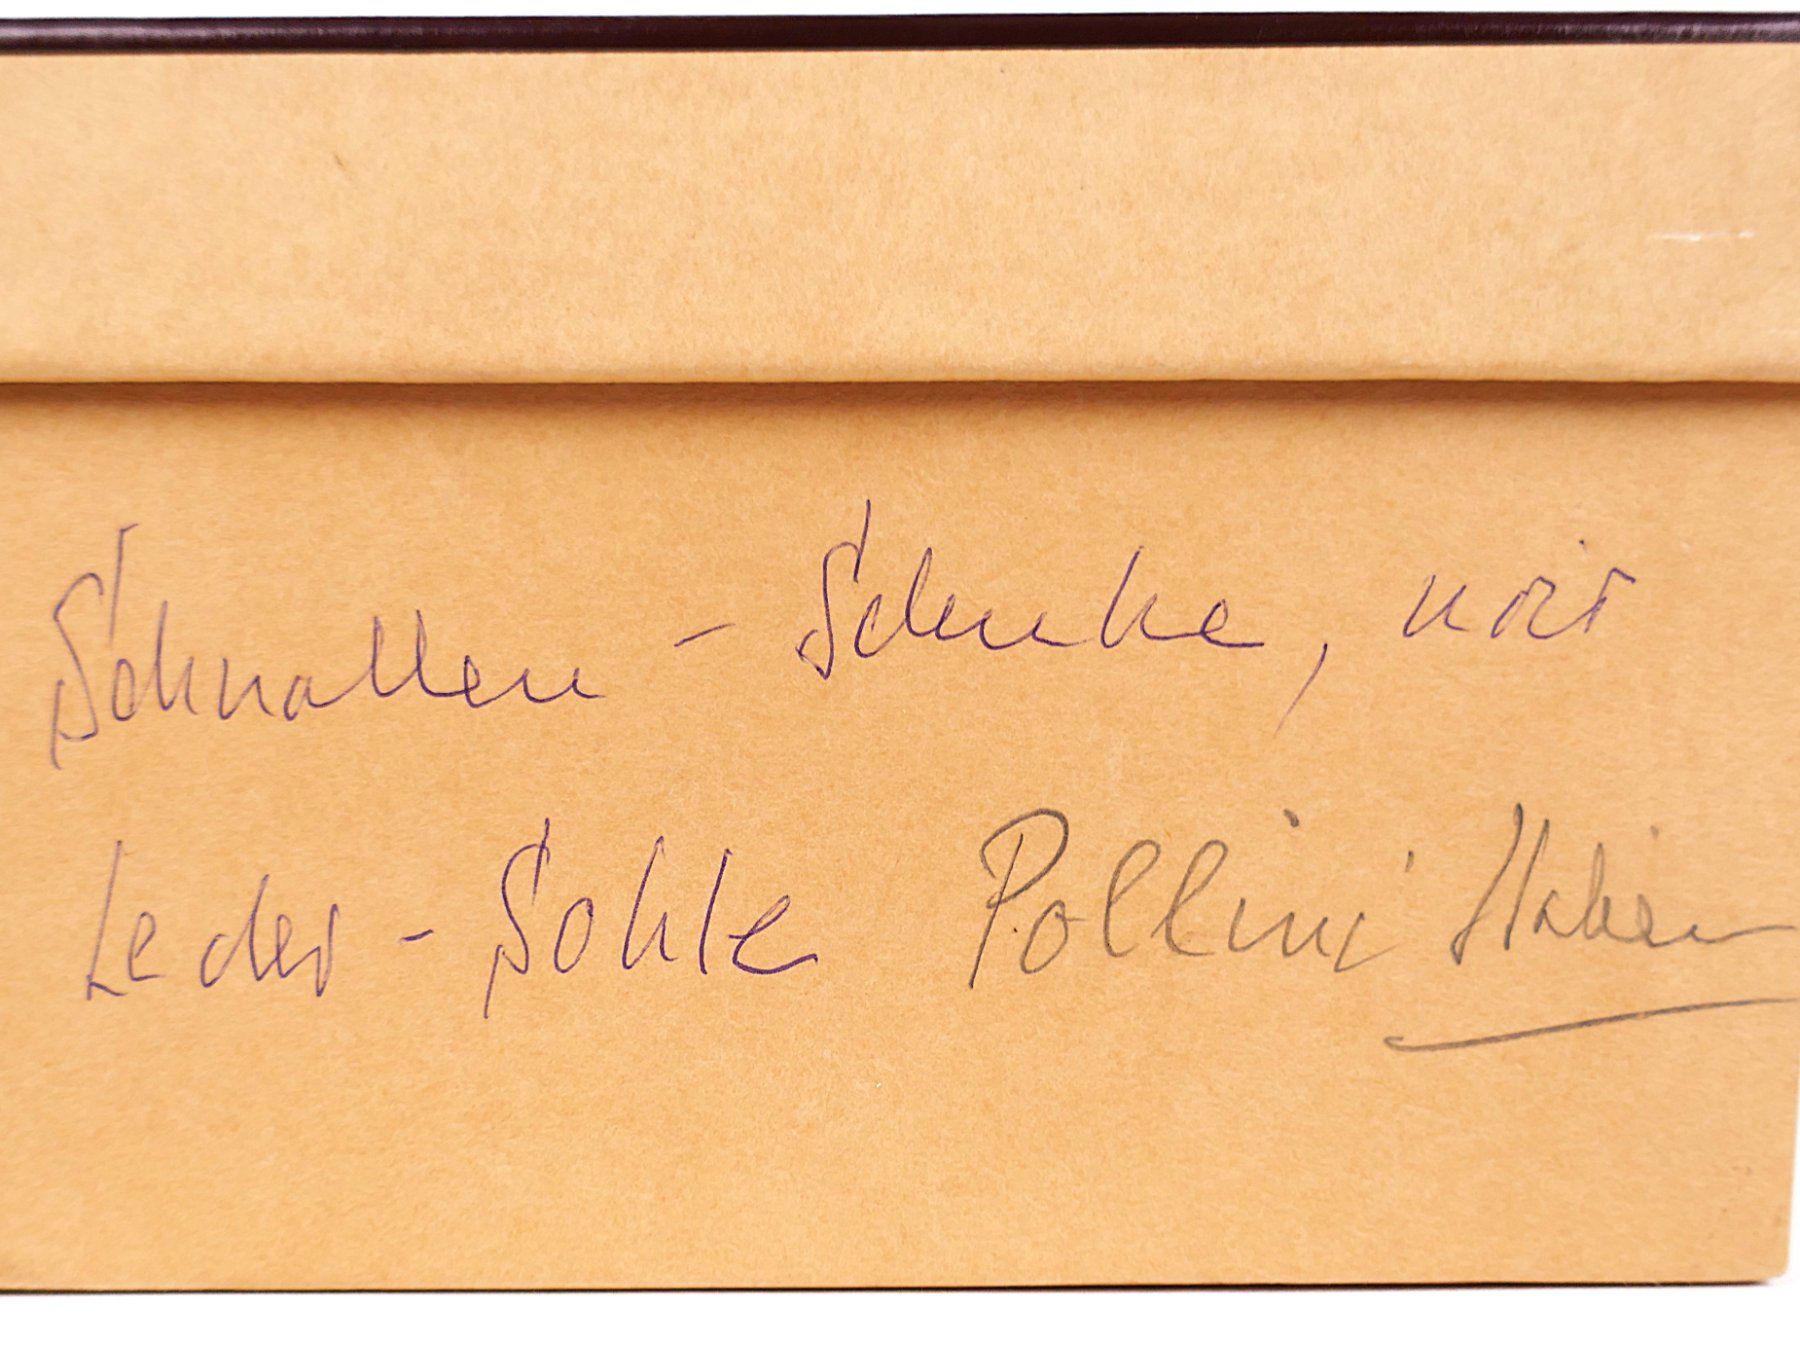 Schnallen - Schuhe, noir
Leder - Sohle Pollini Italien